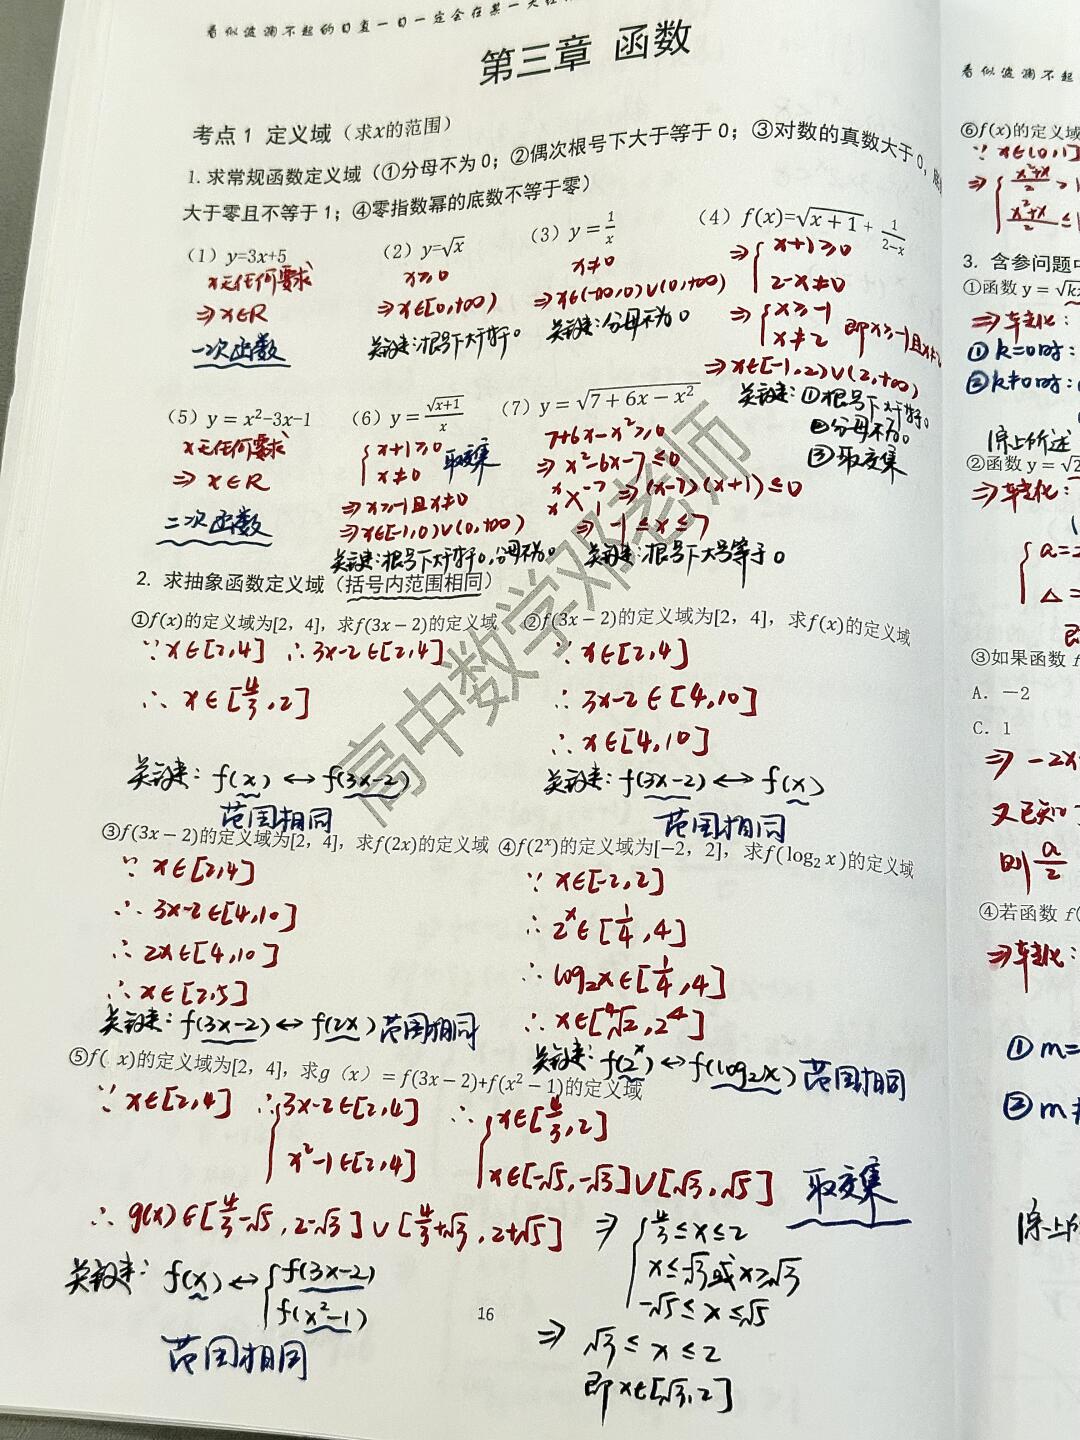 看似波澜不起的日复一日一定会在某一天
第三章 函数
考点1 定义域（求x的范围）
1.求常规函数定义域（①分母不为0；②偶次根号下大于等于0；③对数的真数大于0，
大于零且不等于1；④零指数幂的底数不等于零）
（1）y=3x+5
x无任何要求
⇒x∈R
一次函数
（2）y=√x
x≥0
⇒x∈[0,+∞)
关键: 根号下大于等于0
（3）y = 1/x
x≠0
⇒x∈(-∞,0)∪(0,+∞)
关键: 分母不为0
（4）f(x)=√(x+1) + 1/(2-x)
⇒{ x+1≥0
2-x≠0
⇒{ x≥-1
x≠2 即x≥-1且x≠2
⇒x∈[-1,2)∪(2,+∞)
关键: ①根号下大于等于0
②分母不为0
③取交集
（5）y = x²-3x-1
x无任何要求
⇒ x∈R
二次函数
（6）y = √(x+1)/x
{ x+1≥0
x≠0 取交集
⇒x≥-1且x≠0
⇒x∈[-1,0)∪(0,+∞)
关键: 根号下大于等于0,分母不为0
（7）y = √(7 + 6x − x²)
7+6x-x²≥0
⇒ x²-6x-7≤0
x -7
x 1 ⇒ (x-7)(x+1)≤0
⇒ -1≤x≤7
关键: 根号下大号等于0
2. 求抽象函数定义域（括号内范围相同）
①f(x)的定义域为[2，4]，求f(3x − 2)的定义域
∵x∈[2,4] ∴3x-2∈[2,4]
∴ x∈[4/3,2]
关键: f(x)↔f(3x-2)
范围相同
②f(3x − 2)的定义域为[2，4]，求f(x)的定义域
∵ x∈[2,4]
∴ 3x-2∈[4,10]
∴ x∈[4,10]
关键: f(3x-2)↔f(x)
范围相同
③f(3x − 2)的定义域为[2，4]，求f(2x)的定义域
∵ x∈[2,4]
∴ 3x-2∈[4,10]
∴ 2x∈[4,10]
∴ x∈[2,5]
关键: f(3x-2)↔f(2x) 范围相同
④f(2ˣ)的定义域为[−2，2]，求f(log₂ x)的定义域
∵ x∈[-2,2]
∴ 2ˣ∈[1/4,4]
∴ log₂x∈[1/4,4]
∴ x∈[⁴√2,2⁴]
关键: f(2ˣ)↔f(log₂x) 范围相同
⑤f( x)的定义域为[2，4]，求g（x）= f(3x − 2)+f(x² − 1)的定义域
∵x∈[2,4] ∴{3x-2∈[2,4]
x²-1∈[2,4]
∴{x∈[4/3,2]
x∈[-√5,-√3]∪[√3,√5] 取交集
∴ g(x)∈[4/3-√5,2-√3]∪[4/3+√3,2+√5]
⇒{ 4/3≤x≤2
x≤-√3或x≥√3
-√5≤x≤√5
⇒ √3≤x≤2
即x∈[√3,2]
关键: f(x)↔{f(3x-2)
f(x²-1)
范围相同
16
高中数学邓老师
看似波澜不起
⑥f(x)的定义域
∵ x∈[0,1]
3. 含参问题中
①函数 y =
⇒转化:
①k=0时:
②k≠0时:
综上所述
②函数 y = √2
⇒转化:
{ a=2
△=
即
③如果函数 f
A. −2
C. 1
⇒ -2x
又已知
则 a/2
④若函数 f(
⇒转化:
①m=
②m≠
综上所